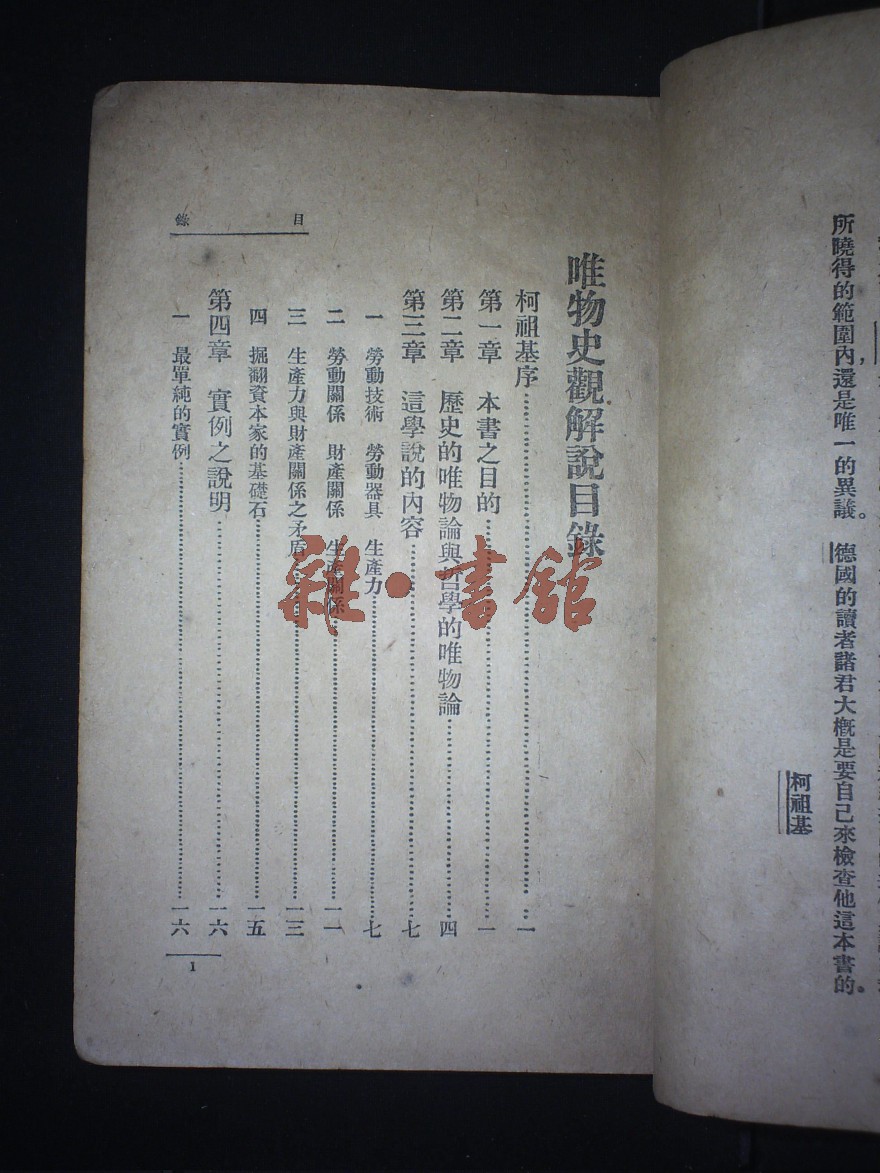 所曉得的範圍內，還是唯一的異議。德國的讀者諸君大概是要自己來檢查他這本書的。
柯祖基
唯物史觀解說目錄
柯祖基序……一
第一章　本書之目的……一
第二章　歷史的唯物論與哲學的唯物論……四
第三章　這學說的內容……七
一　勞動技術　勞動器具　生產力……七
二　勞動關係　財產關係　生產關係……一一
三　生產力與財產關係之矛盾……一三
四　掘翻資本家的基礎石……一五
第四章　實例之說明……一六
一　最單純的實例……一六
目錄
1
雜·書館